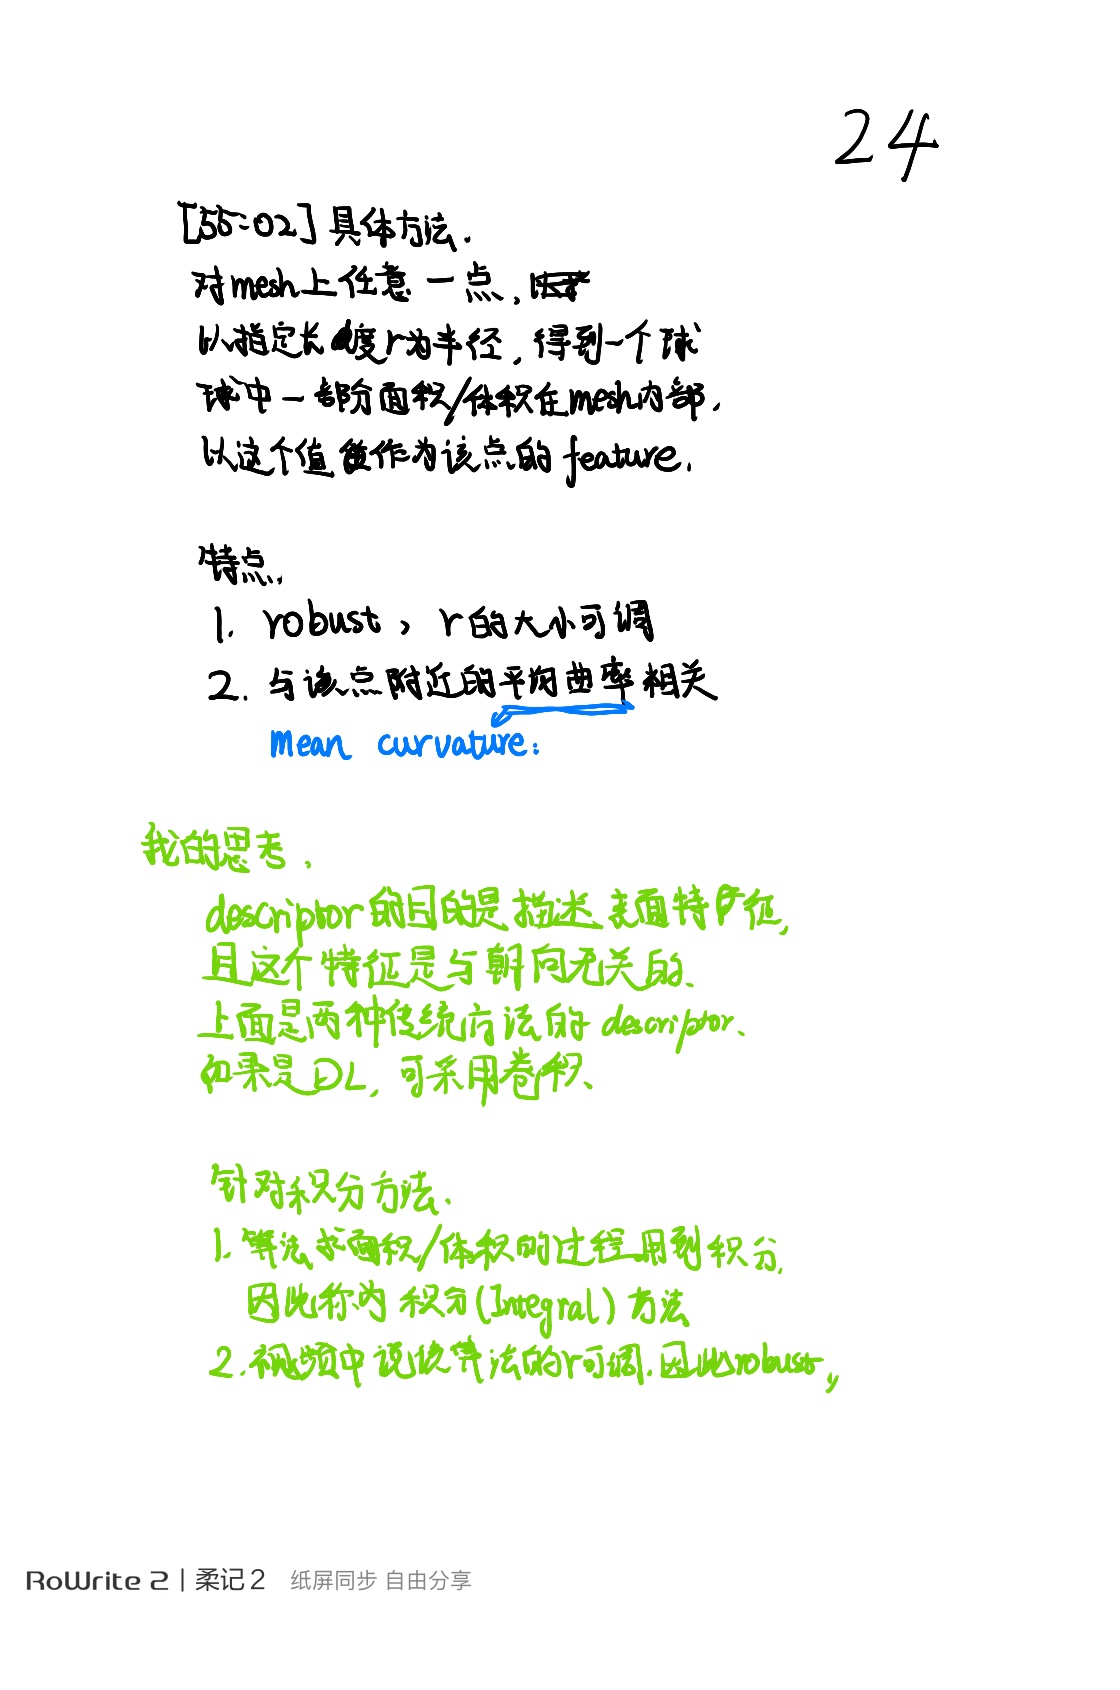 24
[55:02]具体方法.
对mesh上任意一点,
以指定长度r为半径,得到一个球
球中一部分面积/体积在mesh内部,
以这个值作为该点的feature.
特点.
1. robust, r的大小可调
2. 与该点附近的平均曲率相关
mean curvature:
我的思考.
descriptor的目的是描述表面特征,
且这个特征是与朝向无关的、
上面是两种传统方法的descriptor、
如果是DL,可采用卷积、
针对积分方法.
1. 算法求面积/体积的过程用到积分,
因此称为积分(Integral)方法
2. 视频中说该算法的r可调.因此robust,
RoWrite 2 | 柔记2 纸屏同步 自由分享